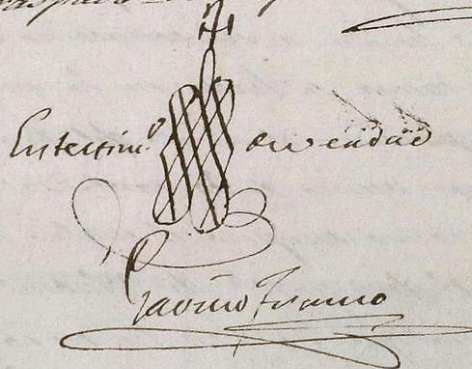 En testim.º de verdad
Gavino Franco